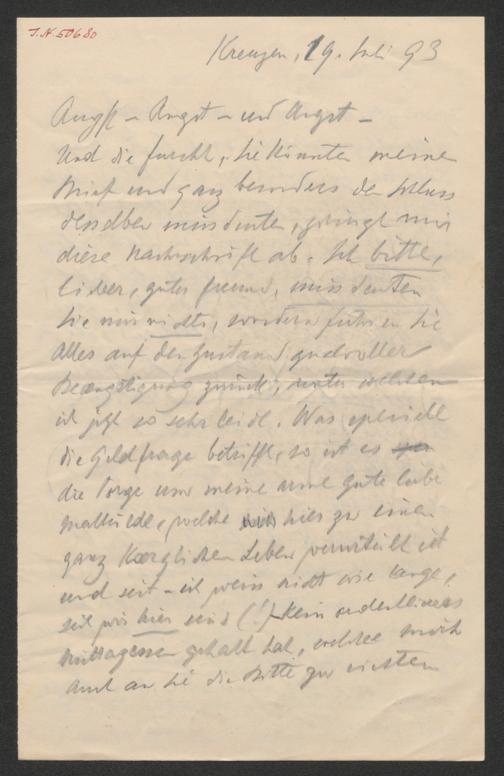 I.N. 50680
Kreuzen, 19. Juli 93
Angst – Angst – und Angst –
Und die Furcht, Sie könnten meinen
Brief und ganz besonders den Schluss
desselben missdeuten, zwingt mir
diese Nachschrift ab. Ich bitte,
lieber, guter Freund, missdeuten
Sie mir nichts, sondern führen Sie
Alles auf den Zustand qualvoller
Beängstigung zurück, unter welchem
ich jetzt so sehr leide. Was speciell
die Geldfrage betrifft, so ist es
die Sorge um meine arme gute liebe
Mathilde, welche hier zu einem
ganz kärglichen Leben verurteilt ist
und seit – ich weiss nicht wie lange,
seit wir hier sind (!) kein ordentliches
Mittagessen gehabt hat, welche mich
auch an Sie die Bitte zu richten